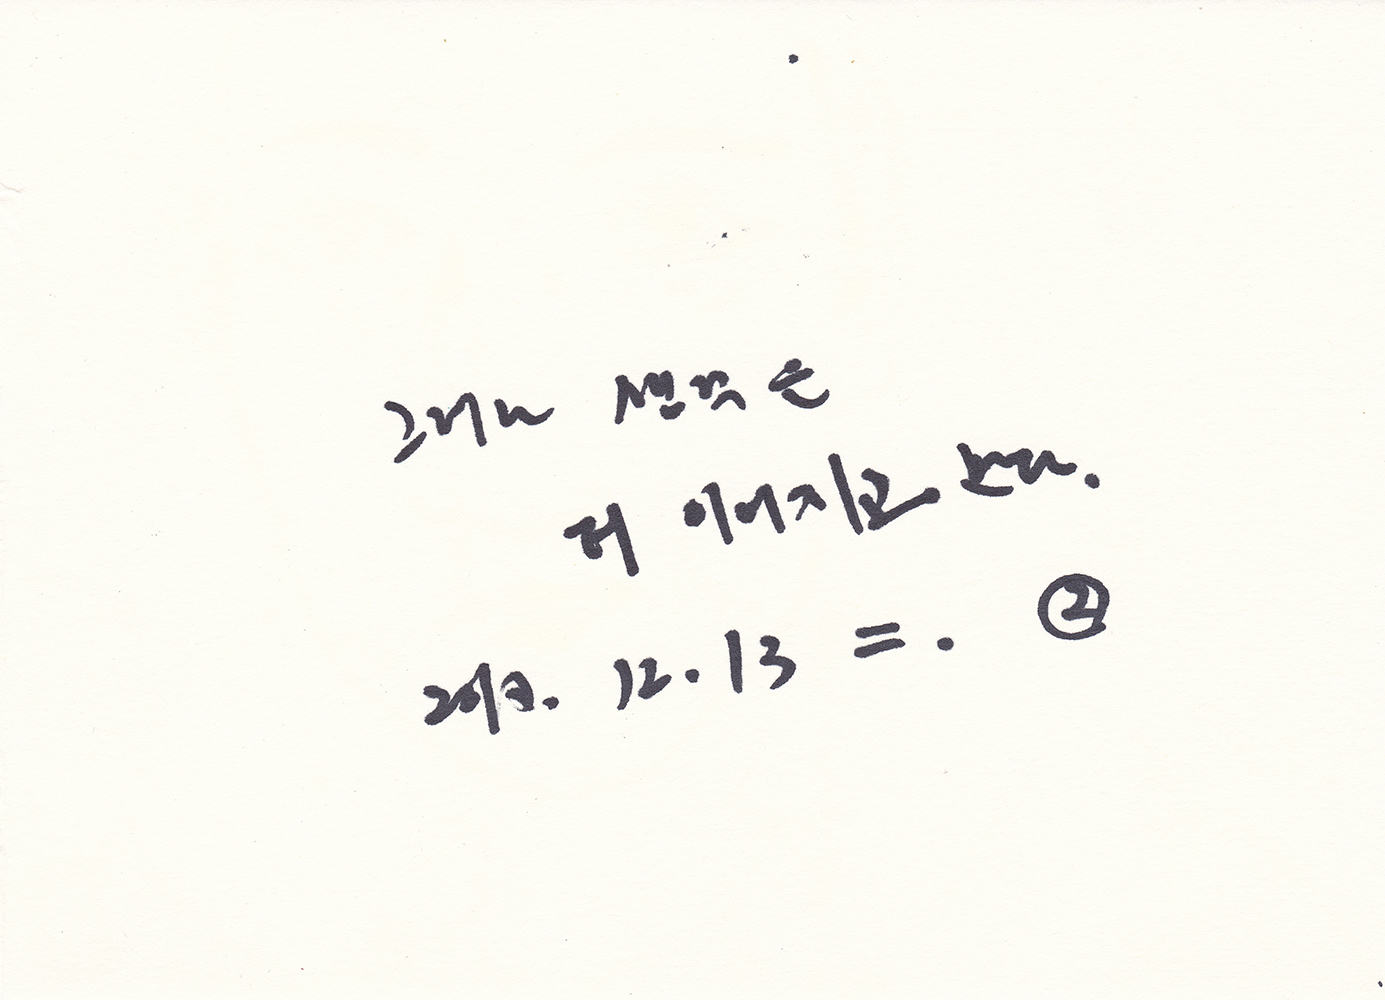 그러나 생각은
더 이어지고 난다.
12.13 =. ②